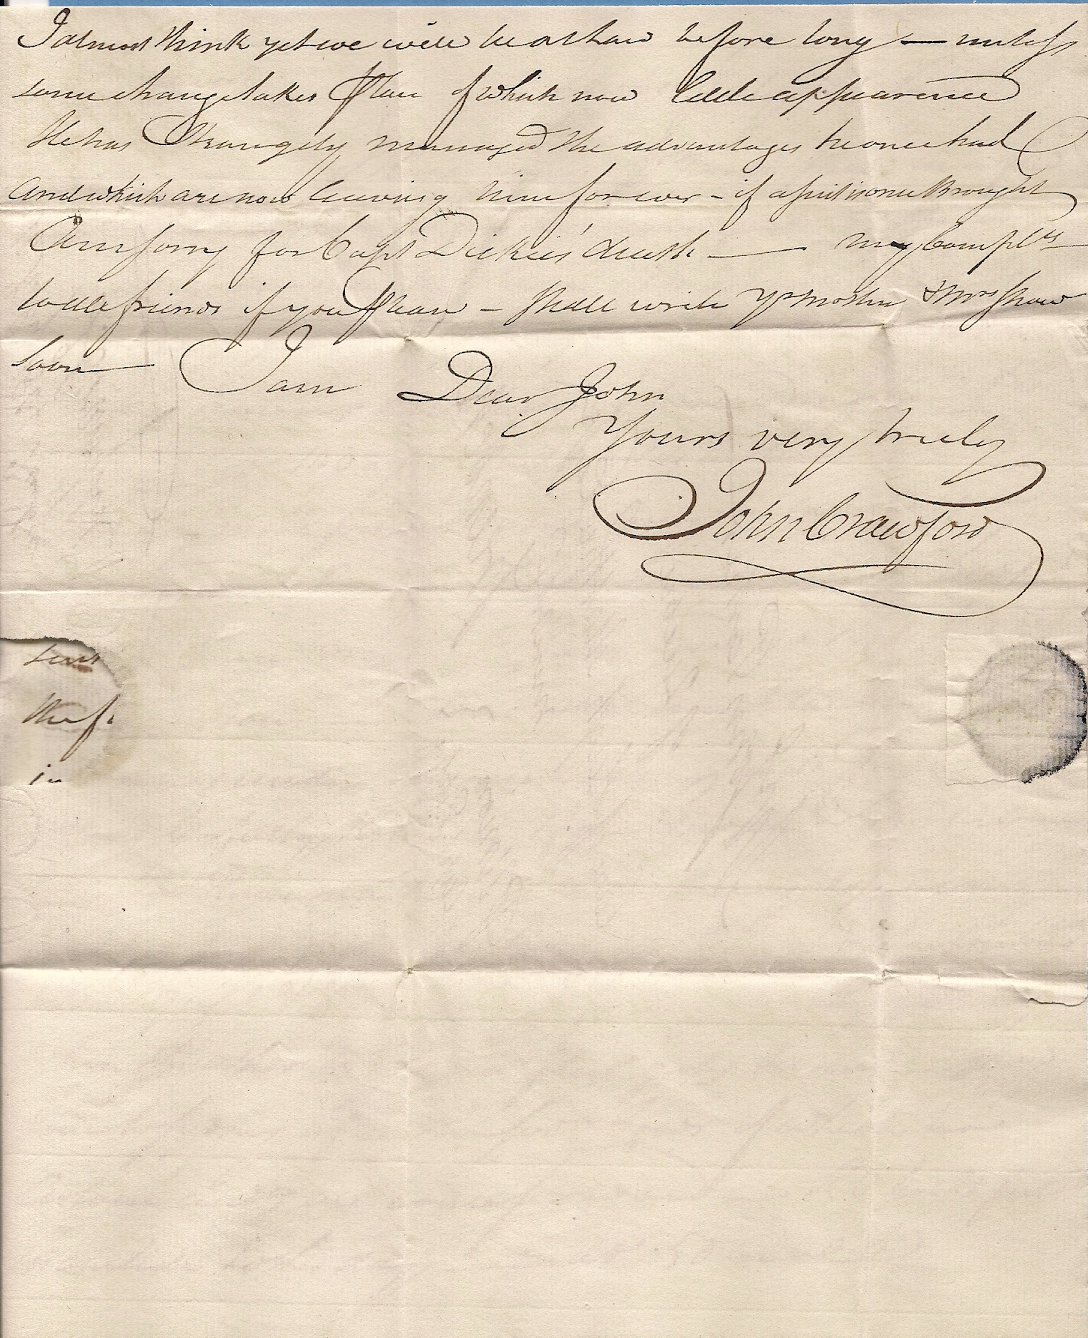 I almost think yet we will be at have before long — unless
some change takes place of which now little appearance
He has strangely managed the advantages he once had
And which are now leaving him for ever - if a brought
Am sorry for Capt Dickie's death — my Complts
to all friends if you please - shall write yr Mother & Mrs Shaw
soon — I am Dear John
Yours very truly
John Crawford
in